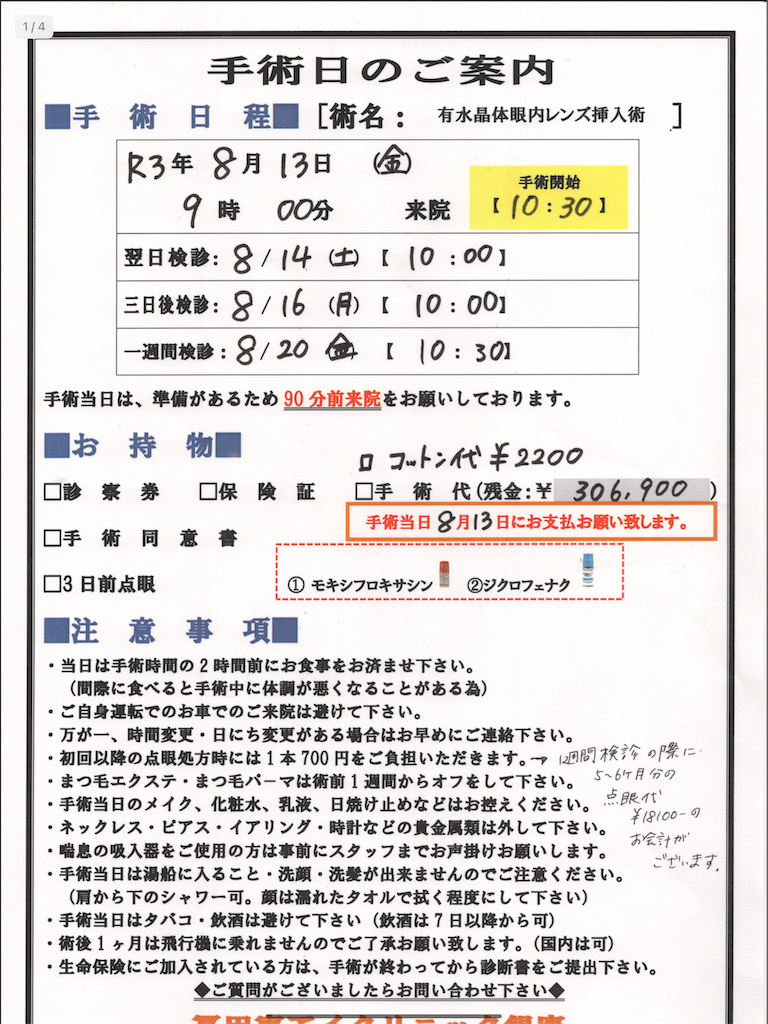 1/4
手術日のご案内
■手術日程■ [術名： 有水晶体眼内レンズ挿入術 ]
R3年 8月 13日 (金)
9時 00分 来院
手術開始
【 10：30 】
翌日検診：8/14 (土) 【 10：00】
三日後検診：8/16 (月) 【 10：00】
一週間検診：8/20 (金) 【 10：30】
手術当日は、準備があるため90分前来院をお願いしております。
■お持物■
□ コットン代 ¥2200
□診察券 □保険証 □手術代(残金：¥ 306,900 )
手術当日8月13日にお支払お願い致します。
□手術同意書
□3日前点眼 ① モキシフロキサシン ②ジクロフェナク
■注意事項■
・当日は手術時間の2時間前にお食事をお済ませ下さい。
（間際に食べると手術中に体調が悪くなることがある為）
・ご自身運転でのお車でのご来院は避けて下さい。
・万が一、時間変更・日にち変更がある場合はお早めにご連絡下さい。
・初回以降の点眼処方時には1本700円をご負担いただきます。→ 1週間検診の際に
5~6ヶ月分の
点眼代
¥18100-の
お会計が
ございます。
・まつ毛エクステ・まつ毛パーマは術前1週間からオフをして下さい。
・手術当日のメイク、化粧水、乳液、日焼け止めなどはお控えください。
・ネックレス・ピアス・イアリング・時計などの貴金属類は外して下さい。
・喘息の吸入器をご使用の方は事前にスタッフまでお声掛けお願いします。
・手術当日は湯船に入ること・洗顔・洗髪が出来ませんのでご注意ください。
（肩から下のシャワー可。顔は濡れたタオルで拭く程度にして下さい）
・手術当日はタバコ・飲酒は避けて下さい（飲酒は7日以降から可）
・術後1ヶ月は飛行機に乗れませんのでご了承お願い致します。（国内は可）
・生命保険にご加入されている方は、手術が終わってから診断書をご提出下さい。
◆ご質問がございましたらお問い合わせ下さい◆